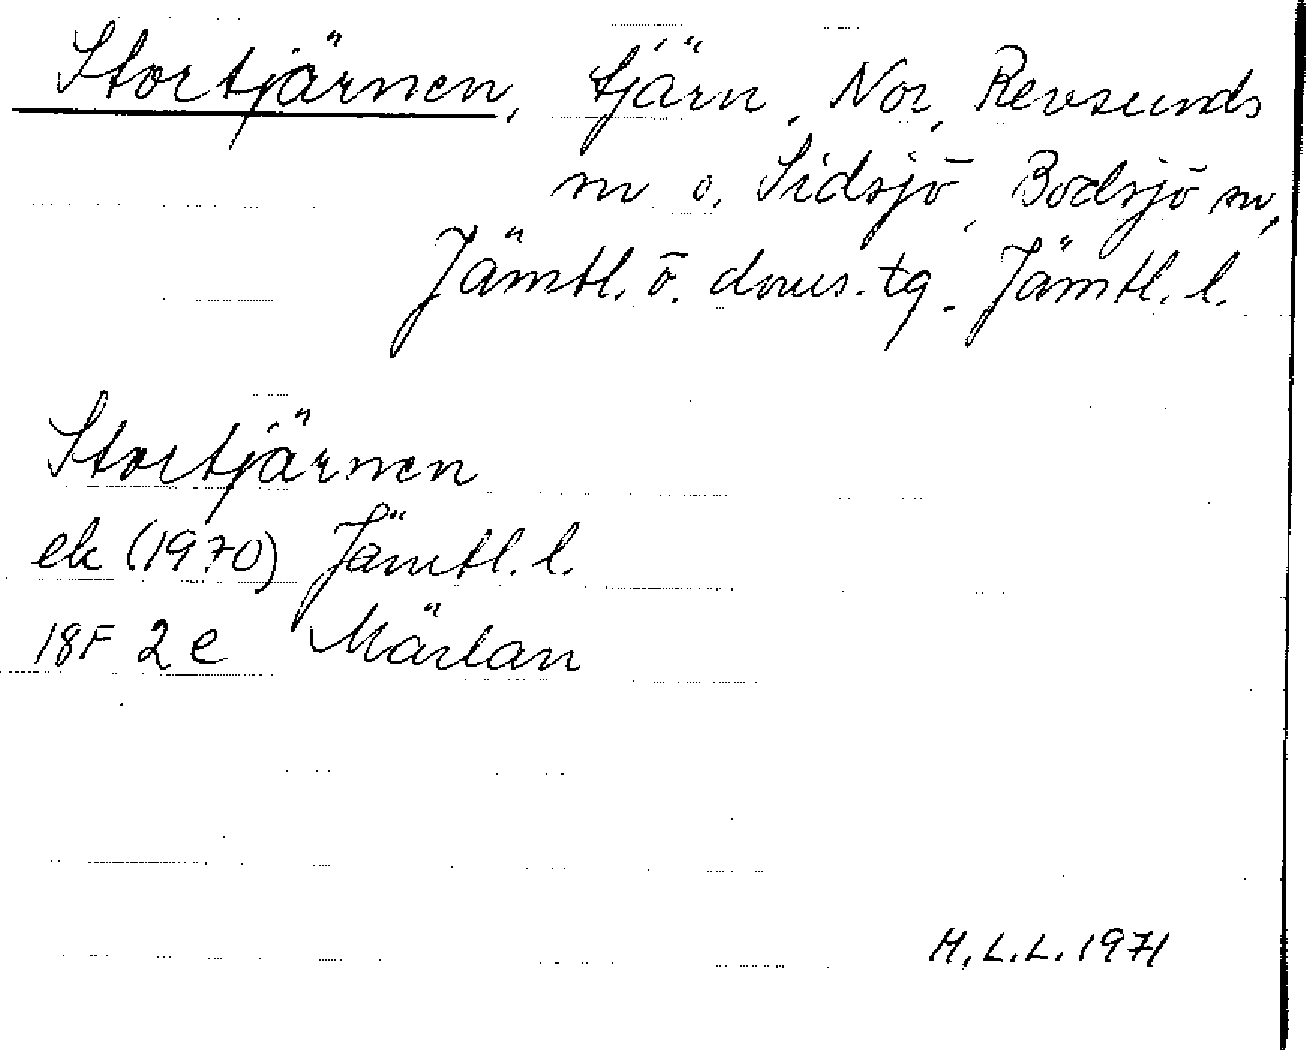 Stortjärnen, tjärn, Nor, Revsunds
sn o. Sidsjö, Bodsjö sn,
Jämtl. ö. doms. tg. Jämtl. l.
Stortjärnen
ek (1970) Jämtl. l.
18F 2e Märlan
M.L.L. 1971